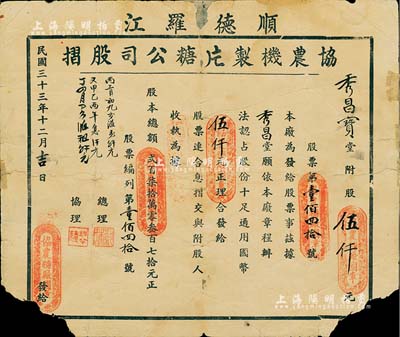 順德羅江
協農機製片糖公司股摺
秀昌寶堂附股伍仟元
股票第壹佰四拾號
本廠為發給股票事茲據
秀昌堂願依本廠章程辦
法認占股份十足通用國幣
伍仟元正理合發給
股票連合息摺交與附股人
收執為據
股本總額貳百柒拾萬零叁百七拾元正
股票編列第壹佰四拾號
總理
協理
民國三十三年十二月吉日
發給
上海陽明拍賣